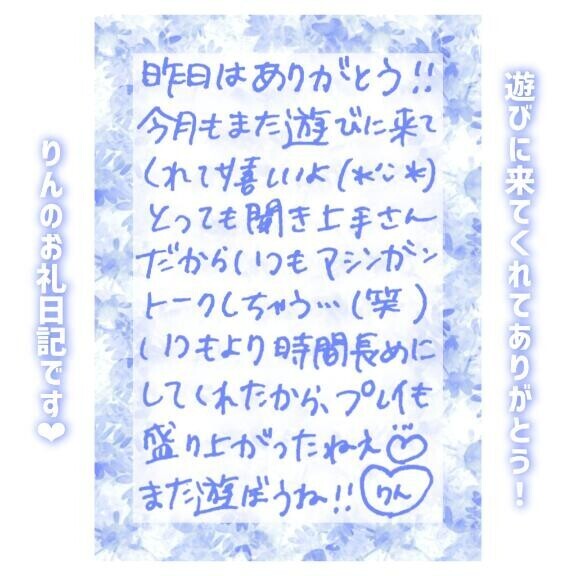 遊びに来てくれてありがとう！
昨日はありがとう!!
今月もまた遊びに来て
くれて嬉しいよ(*ˊᵕˋ*)
とっても聞き上手さん
だからいつもマシンガン
トークしちゃう…(笑)
いつもより時間長めに
してくれたから、プレイも
盛り上がったねえ
また遊ぼうね!!
りん
りんのお礼日記です❤